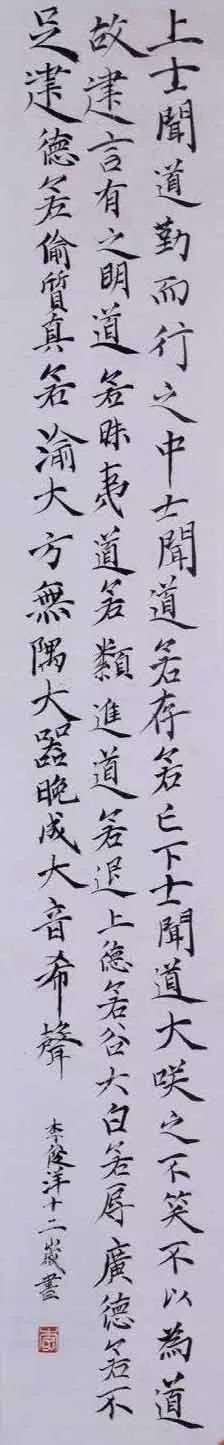 上士聞道勤而行之中士聞道若存若亡下士聞道大咲之不笑不以為道
故建言有之明道若昧夷道若類進道若退上德若谷大白若辱廣德若不
足建德若偷質真若渝大方無隅大器晚成大音希聲
李俊洋十二歲書